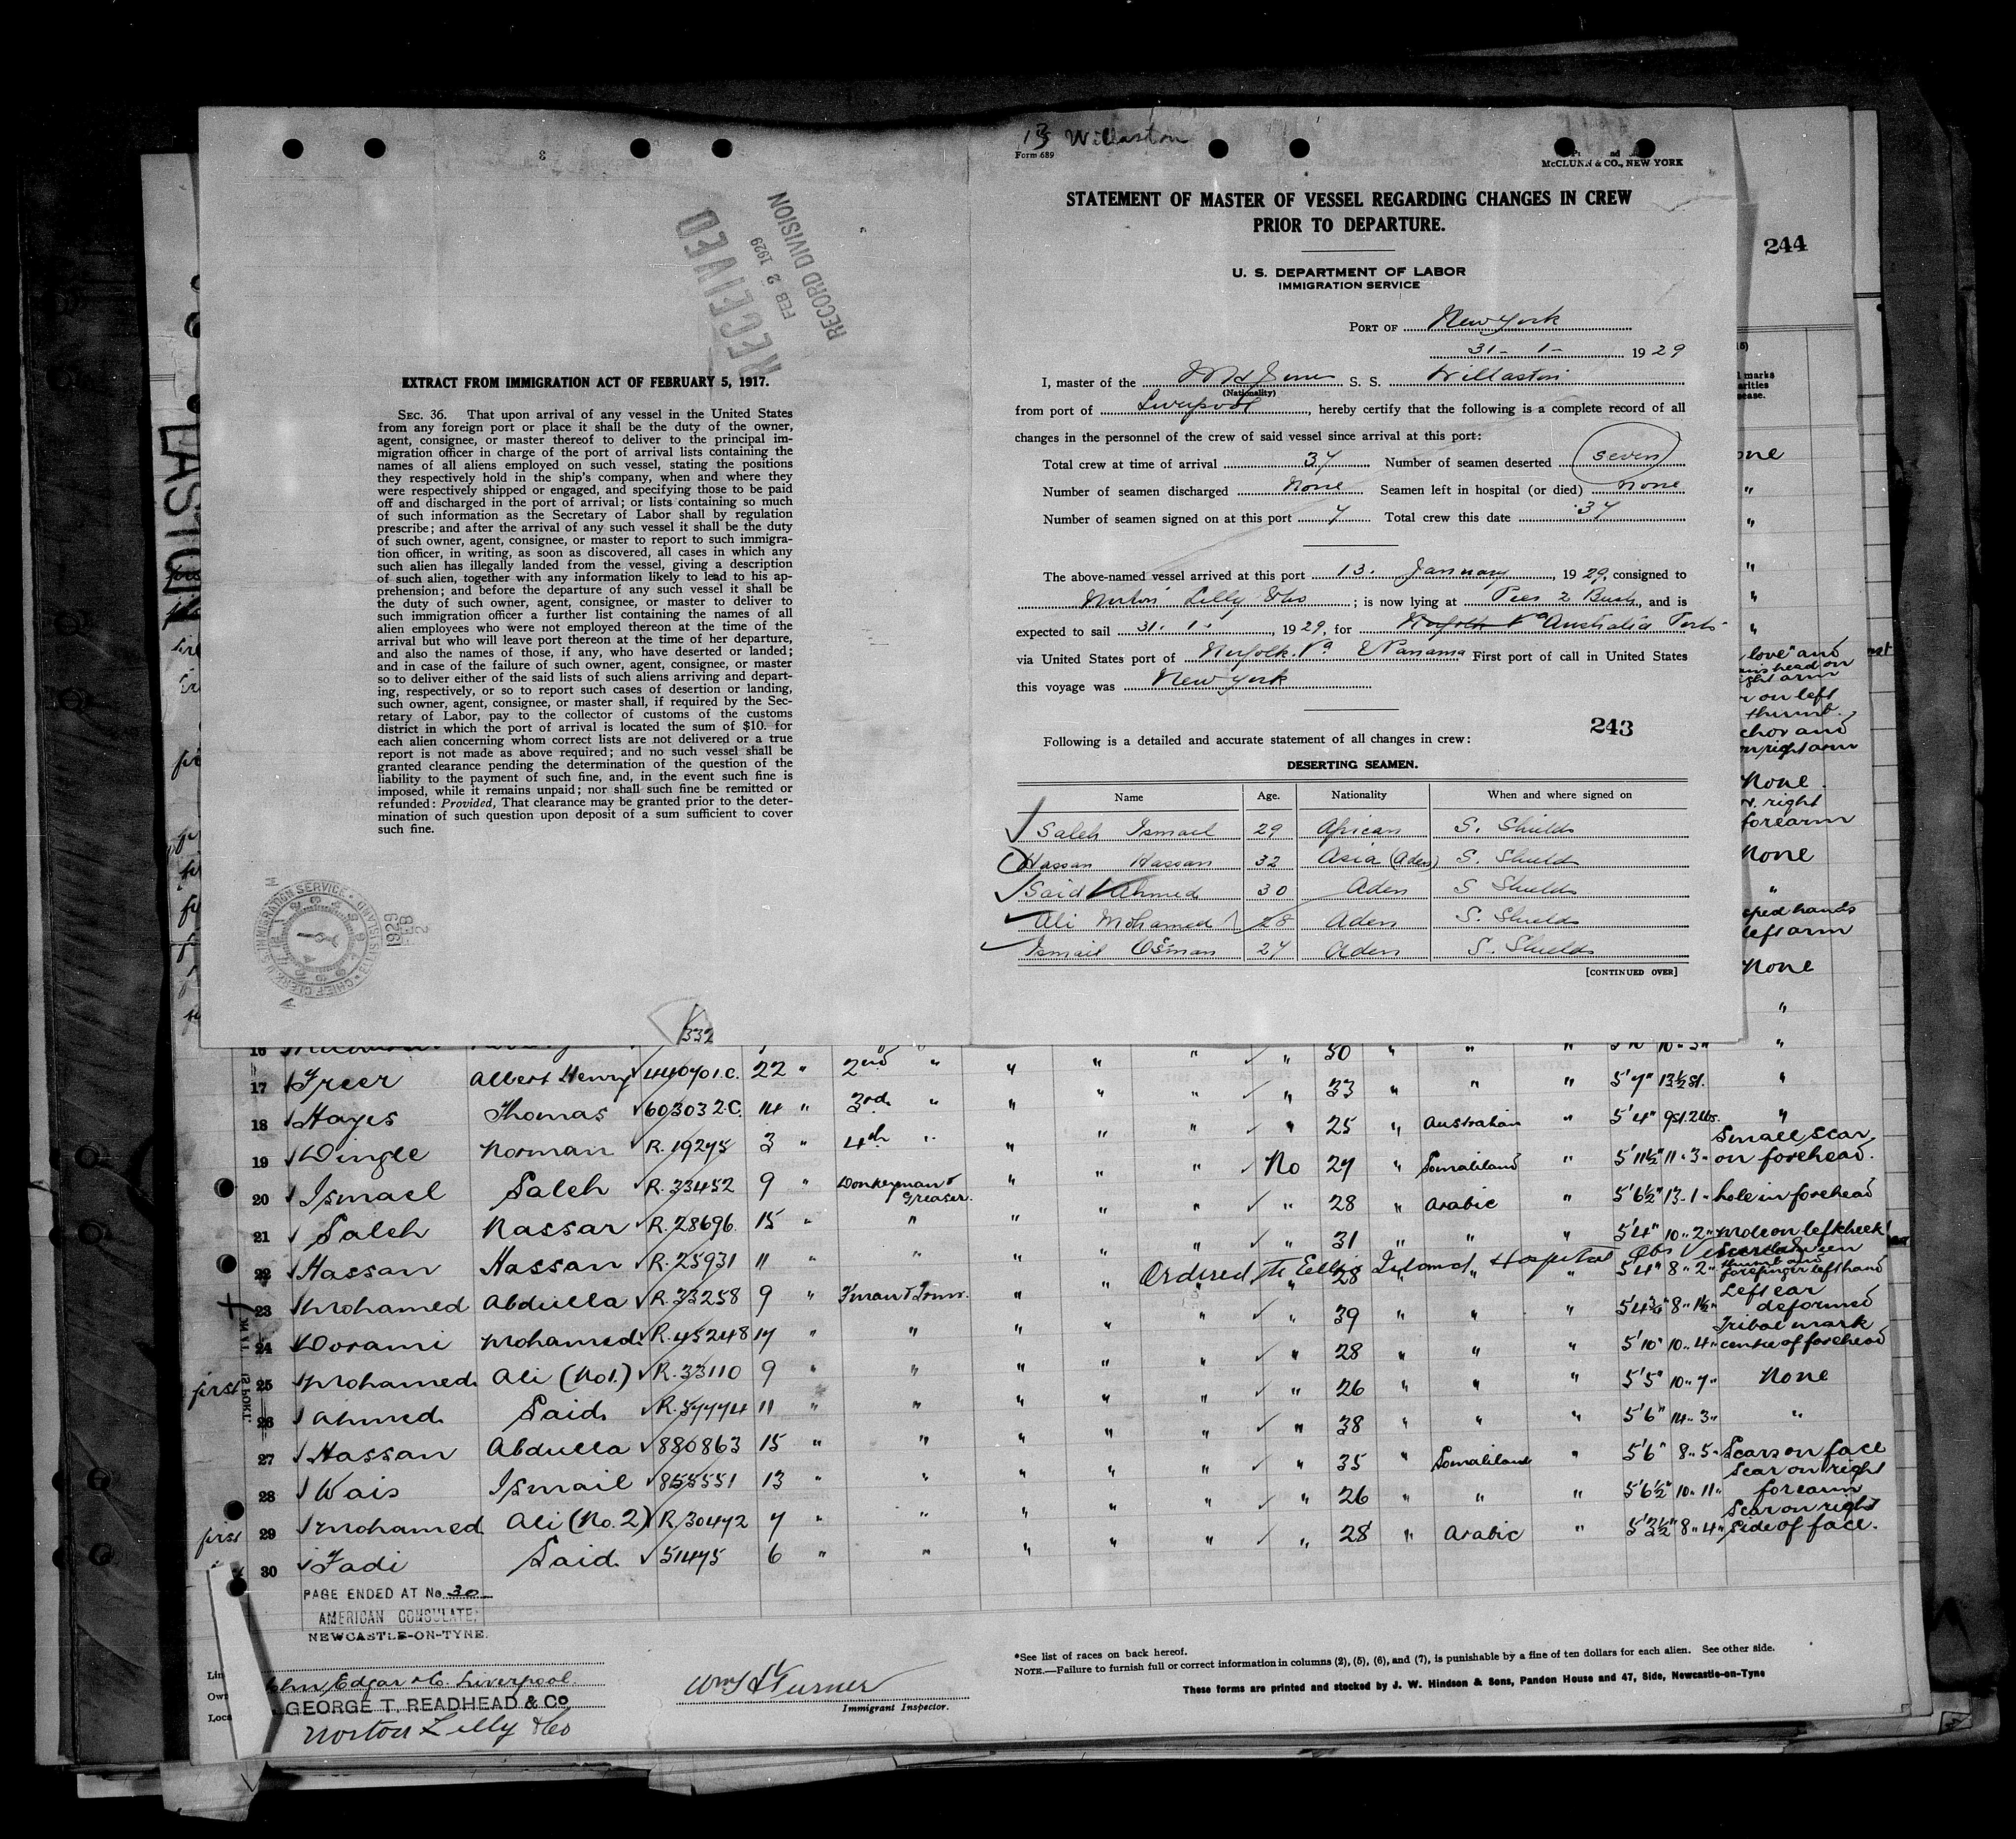 3
RECEIVED
FEB 2 1929
RECORD DIVISION
EXTRACT FROM IMMIGRATION ACT OF FEBRUARY 5, 1917.
SEC. 36. That upon arrival of any vessel in the United States
from any foreign port or place it shall be the duty of the owner,
agent, consignee, or master thereof to deliver to the principal im-
migration officer in charge of the port of arrival lists containing the
names of all aliens employed on such vessel, stating the positions
they respectively hold in the ship's company, when and where they
were respectively shipped or engaged, and specifying those to be paid
off and discharged in the port of arrival; or lists containing so much
of such information as the Secretary of Labor shall by regulation
prescribe; and after the arrival of any such vessel it shall be the duty
of such owner, agent, consignee, or master to report to such immigra-
tion officer, in writing, as soon as discovered, all cases in which any
such alien has illegally landed from the vessel, giving a description
of such alien, together with any information likely to lead to his ap-
prehension; and before the departure of any such vessel it shall be
the duty of such owner, agent, consignee, or master to deliver to
such immigration officer a further list containing the names of all
alien employees who were not employed thereon at the time of the
arrival but who will leave port thereon at the time of her departure,
and also the names of those, if any, who have deserted or landed;
and in case of the failure of such owner, agent, consignee, or master
so to deliver either of the said lists of such aliens arriving and depart-
ing, respectively, or so to report such cases of desertion or landing,
such owner, agent, consignee, or master shall, if required by the Sec-
retary of Labor, pay to the collector of customs of the customs
district in which the port of arrival is located the sum of $10. for
each alien concerning whom correct lists are not delivered or a true
report is not made as above required; and no such vessel shall be
granted clearance pending the determination of the question of the
liability to the payment of such fine, and, in the event such fine is
imposed, while it remains unpaid; nor shall such fine be remitted or
refunded: Provided, That clearance may be granted prior to the deter-
mination of such question upon deposit of a sum sufficient to cover
such fine.
IMMIGRATION SERVICE
FEB 2 1929
332
Willaston
Form 689
McCLUNN & CO., NEW YORK
STATEMENT OF MASTER OF VESSEL REGARDING CHANGES IN CREW
PRIOR TO DEPARTURE.
U. S. DEPARTMENT OF LABOR
IMMIGRATION SERVICE
PORT OF New York
31 - 1 - 1929
I, master of the S. S. Willaston
(Nationality)
from port of Liverpool, hereby certify that the following is a complete record of all
changes in the personnel of the crew of said vessel since arrival at this port:
Total crew at time of arrival 37 Number of seamen deserted seven
Number of seamen discharged None Seamen left in hospital (or died) None
Number of seamen signed on at this port 7 Total crew this date 37
The above-named vessel arrived at this port 13. January, 1929, consigned to
Norton Lilly & Co; is now lying at Pier 2 Bush, and is
expected to sail 31. 1., 1929, for Norfolk Va Australia Ports
via United States port of Norfolk. Va & Panama First port of call in United States
this voyage was New York
243
Following is a detailed and accurate statement of all changes in crew:
DESERTING SEAMEN.
Name Age. Nationality When and where signed on
Saleh Ismael 29 African S. Shields
Hassan Hassan 32 Asia (Aden) S. Shields
Said Ahmed 30 Aden S Shields
Ali Mohamed 1 28 Aden S. Shields
Ismail Osman 27 Aden S. Shields
[CONTINUED OVER]
244
marks
None
"
"
"
"
"
love" and
head on
right arm
on left
thumb.
anchor and
on right arm
None.
right
forearm
None
"
clasped hands
left arm
None
"
16 30 " " " "
17 Freer Albert Henry 440701.C. 22 " 2nd " " " " " 33 " " " 5'7" 13½ st. "
18 Hayes Thomas 603032.C. 14 " 3rd " " " " " 25 " Australian " 5'4" 9st.2lbs. "
19 Dingle Norman R.19275 3 " 4th " " " " No 27 " Somaliland " 5'11½" 11"3" Small scar on forehead.
20 Ismael Saleh R.33452 9 " Donkeyman & Greaser. " " " " 28 " Arabic " 5'6½" 13-1" hole in forehead
21 Saleh Nassar R.28696 15 " " " " " " 31 " " " 5'4" 10"2" mole on left cheek
22 Hassan Hassan R.25931 11 " " " " Ordered to Ellis Island Hospital 28 " 5'4" 8"2" Scar between thumb and forefinger left hand
23 Mohamed Abdulla R.33258 9 " F'man & Trmr. " " " " 39 " " " 5'4¾" 8"1½" Left ear deformed
24 Dorami Mohamed R.45248 17 " " " " " " 28 " " " 5'10" 10"4" Tribal mark centre of forehead
first 25 Mohamed Ali (No1.) R.33110 9 " " " " " " 26 " " " 5'5" 10"7" None
26 Ahmed Said R.37774 11 " " " " " " 38 " " " 5'6" 14"3" "
27 Hassan Abdulla 880863 15 " " " " " " 35 " Somaliland " 5'6" 8"5" Scars on face
28 Wais Ismail 855551 13 " " " " " " 26 " " " 5'6½" 10"11" Scar on right forearm
first 29 Mohamed Ali (No.2) R.30472 7 " " " " " " 28 " Arabic " 5'3½" 8"4" Scar on right side of face.
30 Fadi Said 51475 6 " " " " "
PAGE ENDED AT No. 30
AMERICAN CONSULATE,
NEWCASTLE-ON-TYNE.
Lin
Own
Loca
John Edgar & Co. Liverpool.
GEORGE T. READHEAD & Co
Norton Lilly & Co
Wm S Turner
Immigrant Inspector.
*See list of races on back hereof.
NOTE.—Failure to furnish full or correct information in columns (2), (5), (6), and (7), is punishable by a fine of ten dollars for each alien. See other side.
These forms are printed and stocked by J. W. Hindson & Sons, Pandon House and 47, Side, Newcastle-on-Tyne